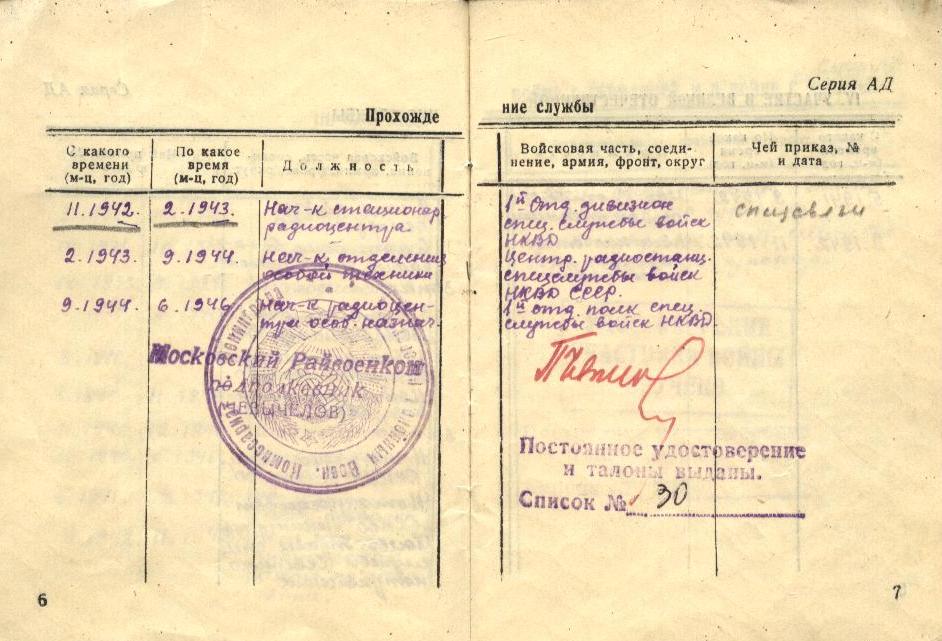 Серия АД
Прохожде
ние службы
С какого
времени
(м-ц, год)
По какое
время
(м-ц, год)
Должность
Войсковая часть, соеди-
нение, армия, фронт, округ
Чей приказ, №
и дата
11.1942.
2.1943.
Нач-к стационар.
радиоцентра
1й Отд. дивизион
спец. службы войск
НКВД
спецсвязи
2.1943.
9.1944.
нач-к отделения
особой техники
Центр. радиостанц.
спецслужбы войск
НКВД СССР.
9.1944.
6.1946
нач-к радиоцен-
тра особ. назнач.
1й отд. полк спец.
службы войск НКВД
Московский Райвоенком
подполковник
Постоянное удостоверение
и талоны выданы.
Список № 30
6
7